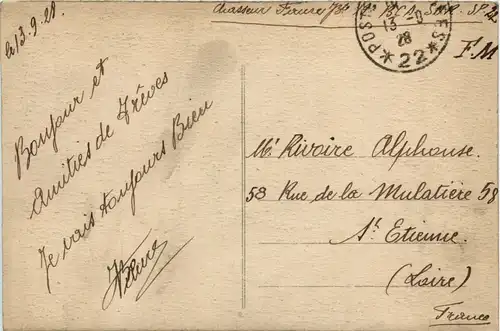 le 13.9.28
Bonjour et
Amitiés de Trêves
Je vais toujours Bien
Chasseur Faure
POSTES
13-9
28
*22*
F.M
Mr Rivoire Alphonse.
58 Rue de la Mulatière 58
St Etienne.
(Loire)
France